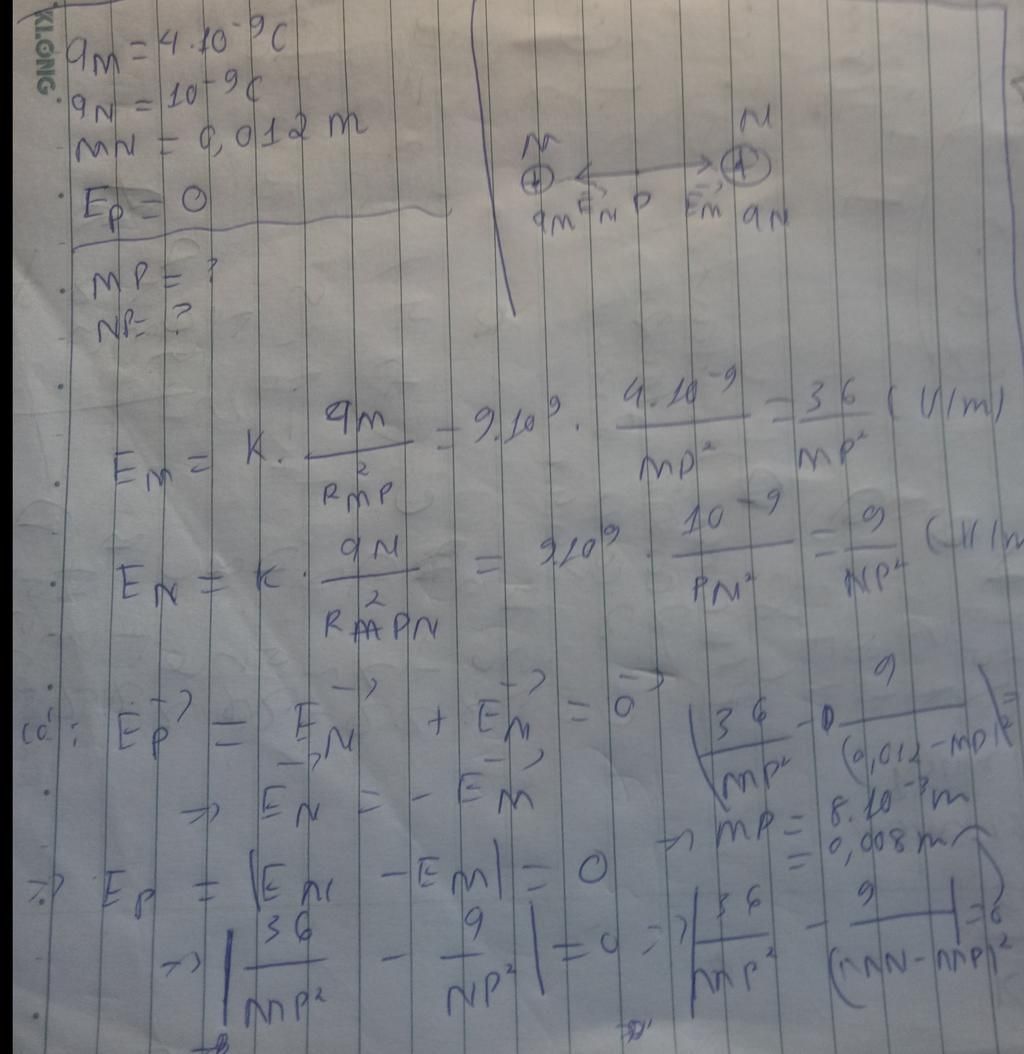 KLONG
qM = 4.10⁻⁹C
qN = 10⁻⁹C
MN = 0,012 m
EP = 0
MP = ?
NP = ?
M N
+ +
qM E⃗N P E⃗M qN
EM = K. qM / R²MP = 9.10⁹. 4.10⁻⁹ / MP² = 36 / MP² (V/m)
EN = K. qN / R²PN = 9.10⁹. 10⁻⁹ / PN² = 9 / NP² (V/m
có: E⃗P = E⃗N + E⃗M = 0⃗
=> E⃗N = - E⃗M
=> EP = |EN - EM| = 0
=> | 36 / MP² - 9 / NP² | = 0 => | 36 / MP² - 9 / (MN - MP)² | = 0
| 36 / MP² - 9 / (0,012 - MP)² | =
=> MP = 8.10⁻³m
= 0,008 m